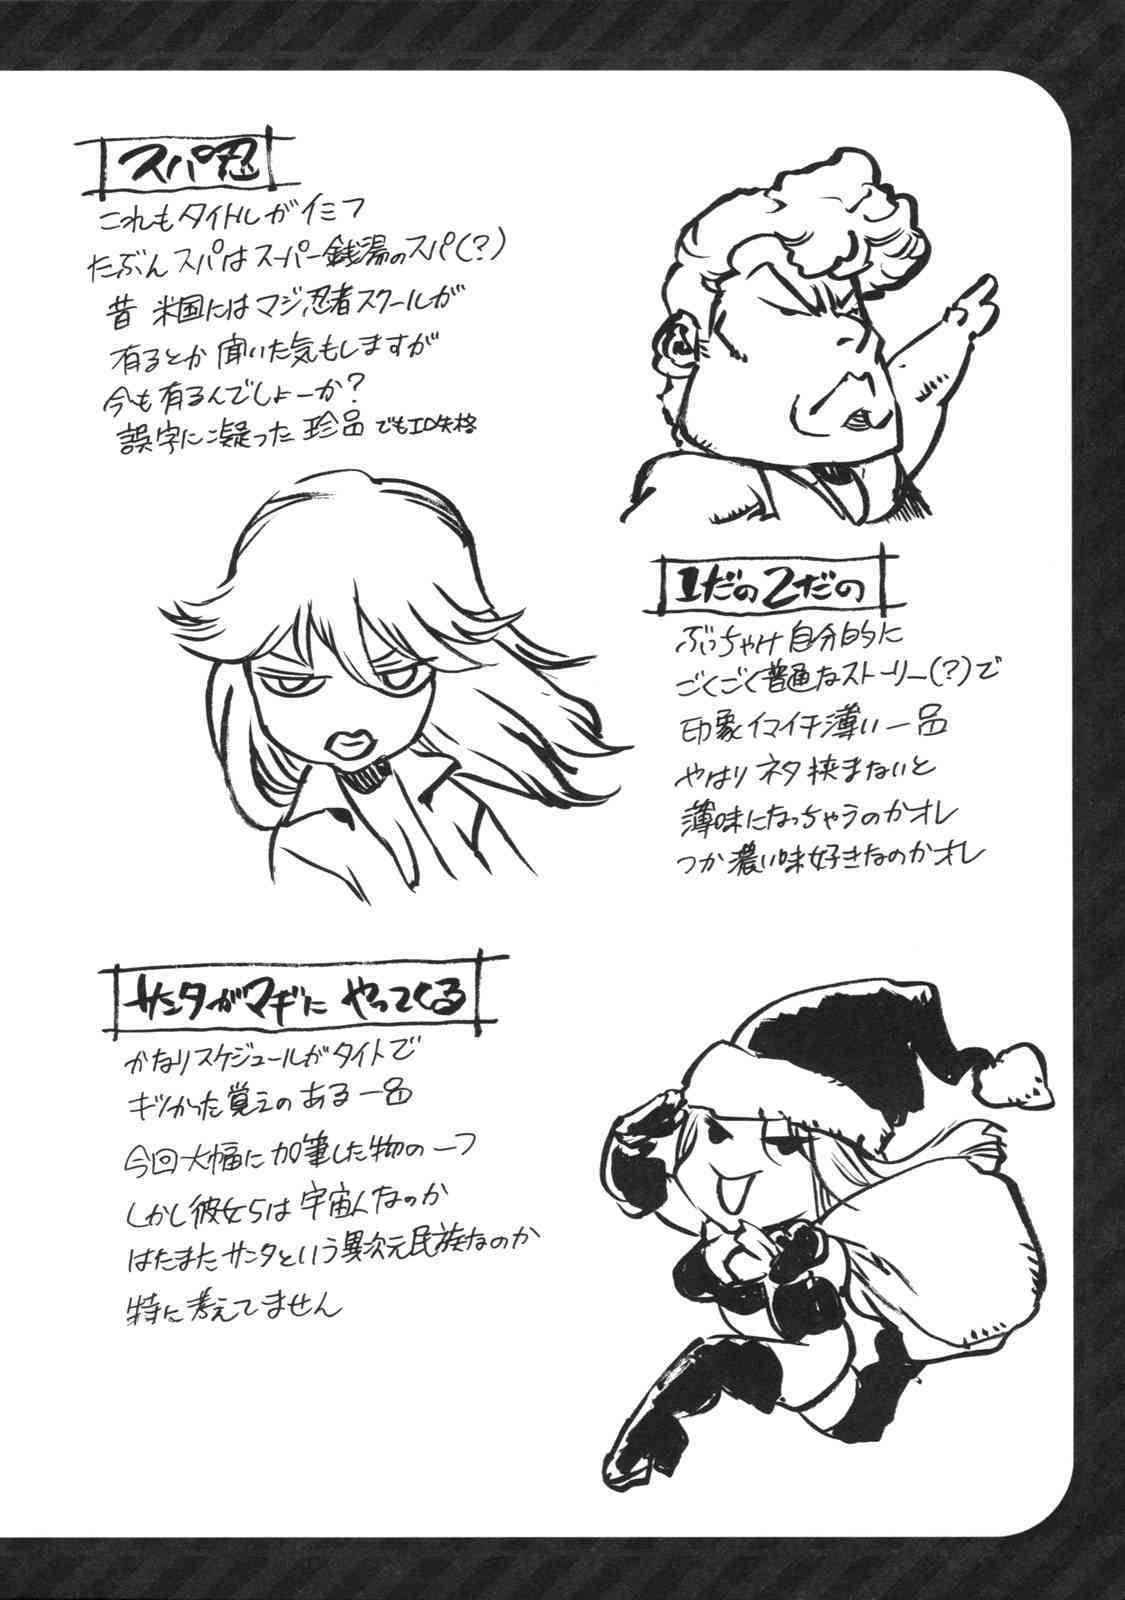 スパ忍
これもタイトルがイミフ
たぶんスパはスーパー銭湯のスパ(?)
昔 米国にはマジ忍者スクールが
有るとか聞いた気もしますが
今も有るんでしょーか?
誤字に凝った珍品でもエロ失格
1だの2だの
ぶっちゃけ自分的に
ごくごく普通なストーリー(?)で
印象イマイチ薄い一品
やはりネタ挟まないと
薄味になっちゃうのかオレ
つか濃い味好きなのかオレ
サンタがマギにやってくる
かなりスケジュールがタイトで
キツかった覚えのある一品
今回大幅に加筆した物の一つ
しかし彼女らは宇宙人なのか
はたまたサンタという異次元民族なのか
特に考えてません